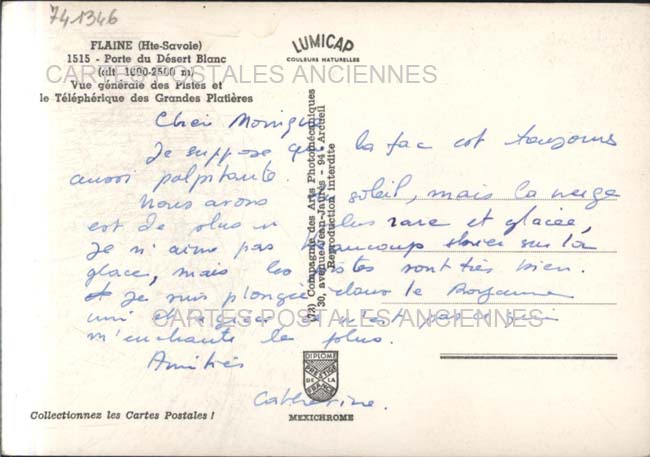 741346
FLAINE (Hte-Savoie)
1515 - Porte du Désert Blanc
(alt 1600-2500 m)
Vue générale des Pistes et
le Téléphérique des Grandes Platières
LUMICAP
COULEURS NATURELLES
CARTES POSTALES ANCIENNES
Je suppose que la fac est toujours
aussi palpitante.
Nous avons soleil, mais la neige
est de plus en plus rare et glacée,
Je n'aime pas beaucoup skier sur la
glace, mais les pistes sont très bien.
Je suis plongée dans le Royaume
uni et n'est pas ce qui
m'enchante le plus.
Amitiés
Catherine.
CARTES POSTALES ANCIENNES
(73) Compagnie des Arts Photomécaniques
30, avenue Jean-Jaurès - 94 - Arcueil
Reproduction interdite
DIPLOME
PRESTIGE
DE LA
FRANCE
MEXICHROME
Collectionnez les Cartes Postales !